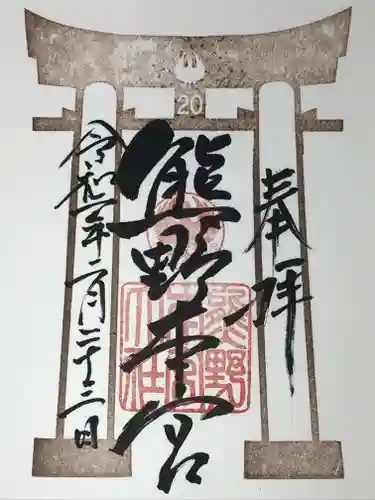 20
奉拝
熊野本宮
令和二年二月二十三日
熊野
本宮
大社